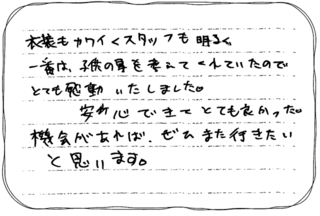 衣装もカワイくスタッフも明るく
一番は、子供の事を考えてくれていたので
とても感動いたしました。
安心できてとても良かった。
機会があれば、ぜひまた行きたい
と思います。